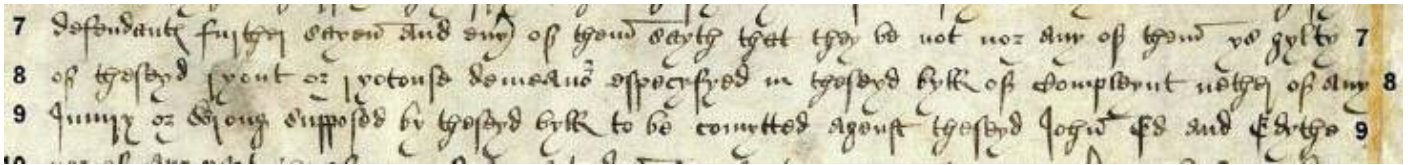 7 defendantes further sayen and euery of them sayth that they be not nor any of them ys gylty 7
8 of theseyd ryout or ryotouse demeanor especyfyed in theseyd byll of compleynt nether of any 8
9 Iniury or Wrong supposed by theseyd byll to be comytted agenst theseyd John Ed and Edythe 9
10